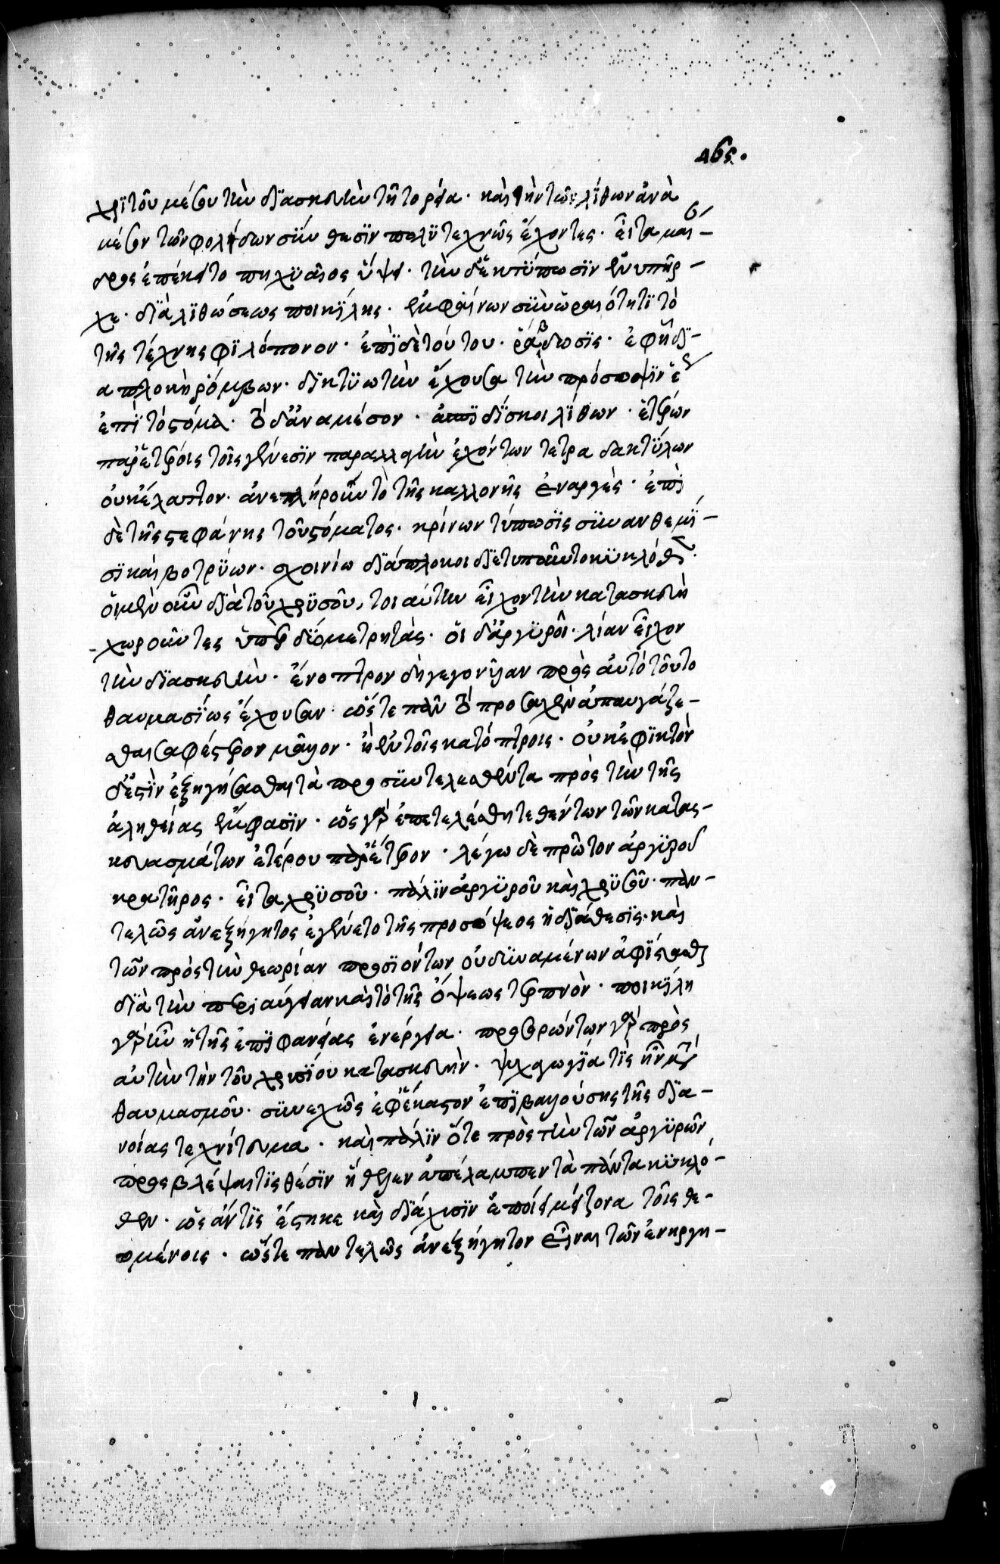 μς.
χρι τοῦ μέσου τὴν διασκευὴν τῆ τορεία· καὶ τὴν τῶν λίθων ἀνὰ
μέσον τῶν φολίδων σύνθεσϊν πολϋτέχνως ἔχοντες· εἶτα μαί-
δρος ἐπέκειτο πηχϋαῖος ὕψει· τὴν δ' ἐκτύπωσϊν ἐνυπῆρ-
χε· δϊὰ λϊθώσεως ποικΐλης· ἐμφαίνων σὺν ὡραιότητϊ τὸ
τῆς τέχνης φϊλόπονον· ἐπῒ δὲ τούτου· ῥάβδωσις· ἐφ' ἧ δϊ-
απλοκὴ ῥόμβων· δϊκτϋωτὴν ἔχουσα τὴν πρόσοψϊν ἕως
ἐπῒ τὸ στόμα· τὸ δ' ἀναμέσον· ἀσπϊδίσκοι λΐθων· ἑτέρων
παρ' ἑτέροις τοῖς γένεσϊν παραλλαγὴν ἐχόντων τετραδακτύλων
οὐκ ἔλαττον· ἀνεπλήρουν τὸ τῆς καλλονῆς ἐναργὲς· ἐπὶ
δὲ τῆς στεφάνης τοῦ στόματος· κρίνων τύπωσϊς σὺν ἀνθεμΐ-
σϊ καὶ βοτρύων· σχοινίω δϊάπλοκοι δϊετυποῦντο κϋκλόθεν·
οἱ μὲν οὖν δϊὰ τοῦ χρϋσοῦ, τοιαύτην εἶχον τὴν κατασκευὴ
χωροῦντες ὑπὲρ δύο μετρητάς· οἱ δ' ἀργϋροῖ· λίαν εἶχον
τὴν δϊασκευὴν· ἔνοπτρον δὴ γεγονυῖαν πρὸς αὐτὸ τοῦτο
θαυμασΐως ἔχουσαν· ὥστε πᾶν τὸ προσαχθὲν ἀπαυγάζε-
σθαι σαφέστερον μᾶλλον· ἢ ἐν τοῖς κατόπτροις· οὐκ ἐφϊκτὸν
δ' ἐστὶν ἐξηγήσασθαι τὰ προσσυντελεσθέντα πρὸς τὴν τῆς
ἀληθείας ἔμφασϊν· ὡς γὰρ ἐπετελέσθη τεθέντων τῶν κατας-
κευασμάτων ἑτέρου παρ' ἕτερον· λέγω δὲ πρῶτον ἀργϋροῦ
κρατῆρος· εἶτα χρϋσοῦ· πάλϊν ἀργϋροῦ καὶ χρϋσοῦ· παν-
τελῶς ἀνεξήγητος ἐγένετο τῆς προσόψεος ἡ δϊάθεσϊς· καὶ
τῶν πρὸς τὴν θεωρίαν προσϊόντων οὐ δϋναμένων ἀφΐστασθαι
δϊὰ τὴν περιαύγειαν καὶ τὸ τῆς ὄψεως τερπνὸν· ποικΐλη
γὰρ ἦν ἡ τῆς ἐπϊφανείας ἐνέργεια· προσορώντων γὰρ πρὸς
αὐτὴν τὴν τοῦ χρυσΐου κατασκευὴν· ψυχαγωγΐα τϊς ἦν μετὰ
θαυμασμοῦ· σϋνεχῶς ἐφ' ἕκαστον ἐπϊβαλλούσης τῆς δϊα-
νοίας τεχνίτευμα· καὶ πάλϊν ὅτε πρὸς τὴν τῶν ἀργϋρῶν
προσβλέψαι τϊς θέσϊν ἤθελεν ἀπέλαμπεν τὰ πάντα κϋκλό-
θεν· ὡς ἄν τϊς ἕστηκε καὶ δϊάχυσϊν ἐποίει μείζονα τοῖς θε-
ωμένοις· ὥστε παντελῶς ἀνεξήγητον εἶναι τῶν ἐνηργη-